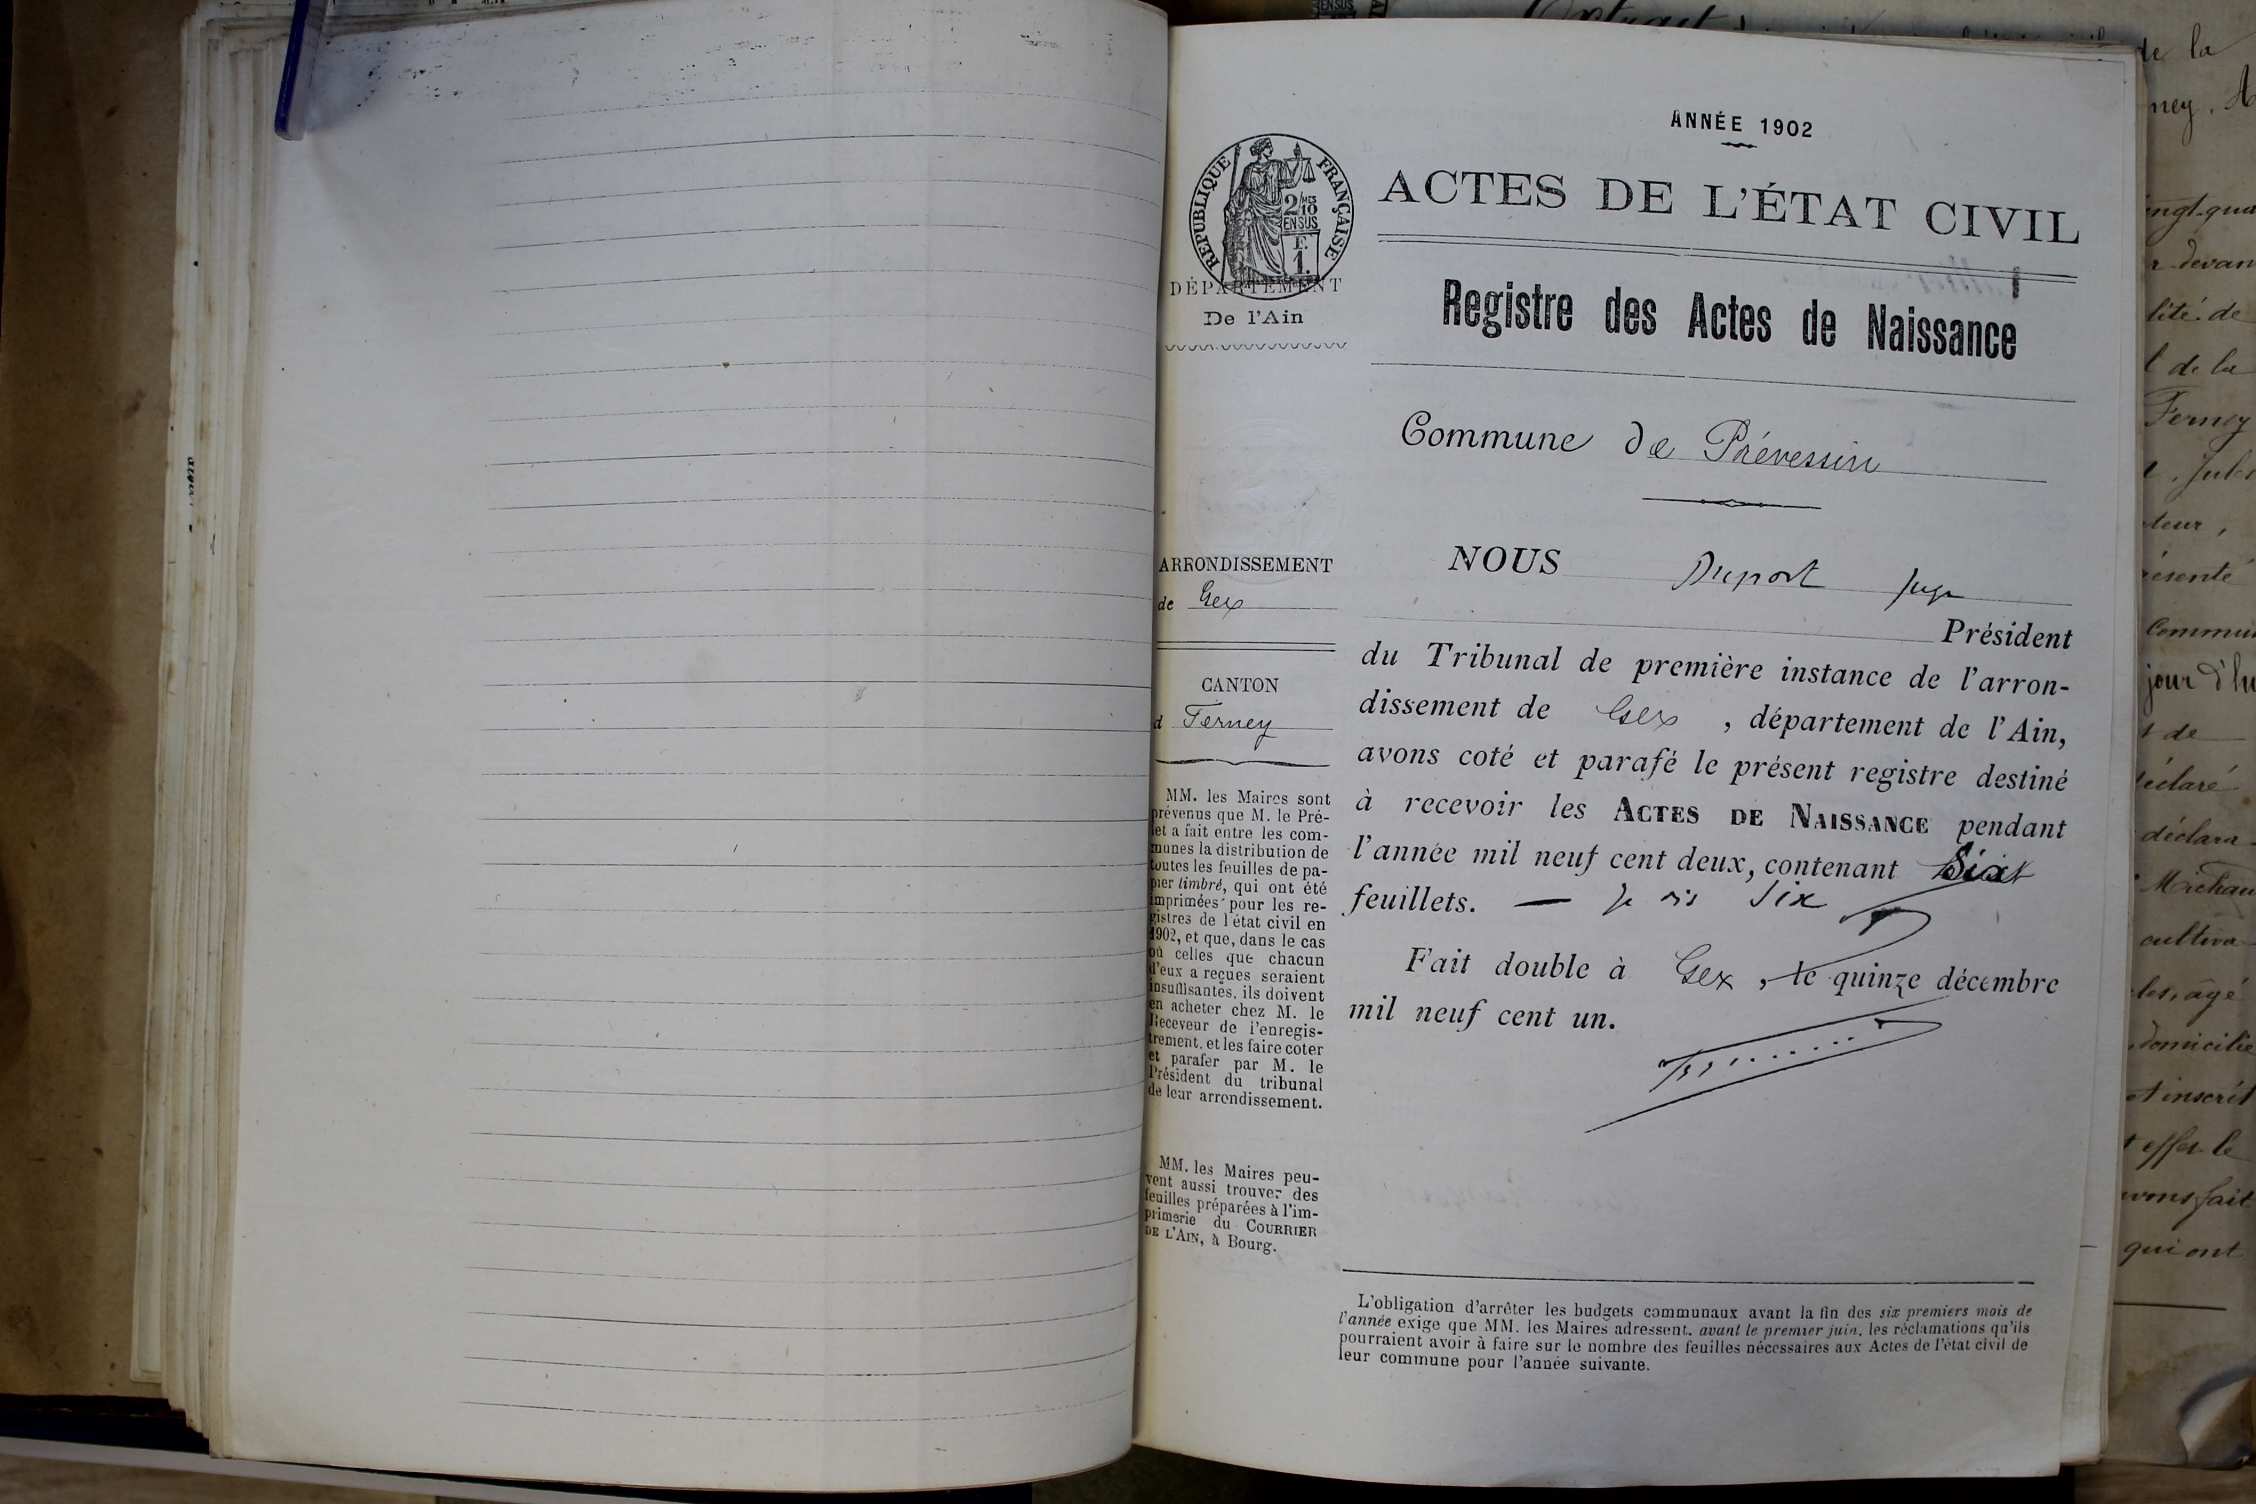 ANNÉE 1902
ACTES DE L'ÉTAT CIVIL
RÉPUBLIQUE FRANÇAISE
2/10
EN SUS
F.
1.
DÉPARTEMENT
De l'Ain
Registre des Actes de Naissance
Commune de Prévessin
ARRONDISSEMENT
de Gex
CANTON
d Ferney
MM. les Maires sont
prévenus que M. le Pré-
fet a fait entre les com-
munes la distribution de
toutes les feuilles de pa-
pier timbré, qui ont été
imprimées pour les re-
gistres de l'état civil en
1902, et que, dans le cas
où celles que chacun
d'eux a reçues seraient
insuffisantes, ils doivent
en acheter chez M. le
Receveur de l'enregis-
trement, et les faire coter
et parafer par M. le
Président du tribunal
de leur arrondissement.
MM. les Maires peu-
vent aussi trouver des
feuilles préparées à l'im-
primerie du COURRIER
DE L'AIN, à Bourg.
NOUS Duport Juge
Président
du Tribunal de première instance de l'arron-
dissement de Gex, département de l'Ain,
avons coté et parafé le présent registre destiné
à recevoir les ACTES DE NAISSANCE pendant
l'année mil neuf cent deux, contenant Six
feuillets. — Je dis Six
Fait double à Gex, le quinze décembre
mil neuf cent un.
L'obligation d'arrêter les budgets communaux avant la fin des six premiers mois de
l'année exige que MM. les Maires adressent, avant le premier juin, les réclamations qu'ils
pourraient avoir à faire sur le nombre des feuilles nécessaires aux Actes de l'état civil de
leur commune pour l'année suivante.
de la
devan
lité de
de la
Ferney
Jules
teur,
résenté
commun
jour d'hu
de
déclaré
déclara-
Michau
cultiva-
âgé
domicilié
et inscrit
effet le
avons fait
qui ont